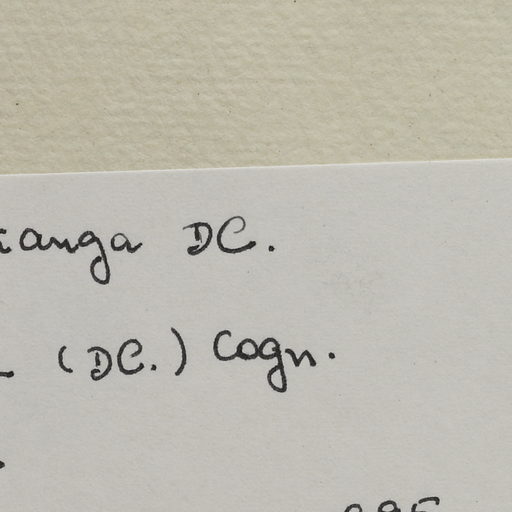 ianga DC.
(DC.) Cogn.